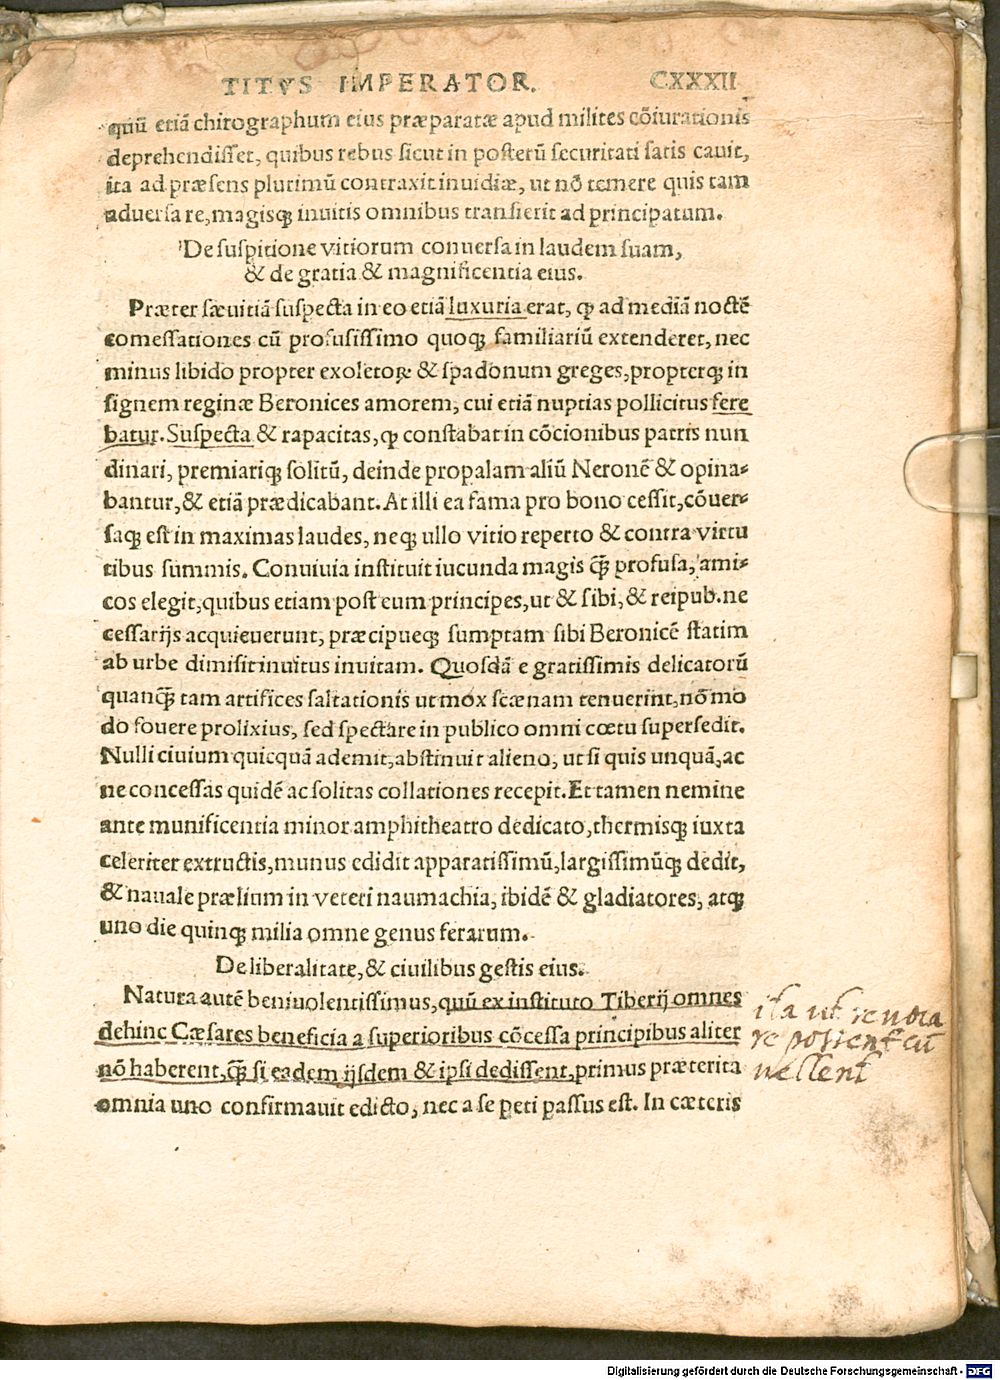 TITVS IMPERATOR. CXXXII
quū etiā chirographum eius præparatæ apud milites cōiurationis
deprehendisset, quibus rebus sicut in posterū securitati satis cauit,
ita ad præsens plurimū contraxit inuidiæ, ut nō temere quis tam
aduersa re, magisq; inuitis omnibus transierit ad principatum.
De suspitione vitiorum conuersa in laudem suam,
& de gratia & magnificentia eius.
Præter sæuitiā suspecta in eo etiā luxuria erat, ꝙ ad mediā noctē
comessationes cū profusissimo quoq; familiariū extenderet, nec
minus libido propter exoletoꝝ & spadonum greges, propterq; in
signem reginæ Beronices amorem, cui etiā nuptias pollicitus fere
batur. Suspecta & rapacitas, ꝙ constabat in cōcionibus patris nun
dinari, premiariq; solitū, deinde propalam aliū Neronē & opina-
bantur, & etiā prædicabant. At illi ea fama pro bono cessit, cōuer-
saq; est in maximas laudes, neq; ullo vitio reperto & contra virtu
tibus summis. Conuiuia instituit iucunda magis q̄; profusa, ami-
cos elegit, quibus etiam post eum principes, ut & sibi, & reipub. ne
cessarijs acquieuerunt, præcipueq; sumptam sibi Beronicē statim
ab urbe dimisit inuitus inuitam. Quosdā e gratissimis delicatorū
quanq̄; tam artifices saltationis ut mox scænam tenuerint, nō mo
do fouere prolixius, sed spectare in publico omni cœtu supersedit.
Nulli ciuium quicquā ademit, abstinuit alieno, ut si quis unquā, ac
ne concessas quidē ac solitas collationes recepit. Et tamen nemine
ante munificentia minor amphitheatro dedicato, thermisq; iuxta
celeriter extructis, munus edidit apparatissimū, largissimūq; dedit,
& nauale prælium in veteri naumachia, ibidē & gladiatores, atq;
uno die quinq; milia omne genus ferarum.
De liberalitate, & ciuilibus gestis eius.
Natura autē beniuolentissimus, quū ex instituto Tiberij omnes
dehinc Cæsares beneficia a superioribus cōcessa principibus aliter
nō haberent, q̄; si eadem ijsdem & ipsi dedissent, primus præterita
omnia uno confirmauit edicto, nec a se peti passus est. In cæteris
ita ut reuoca
re possent cū
vellent